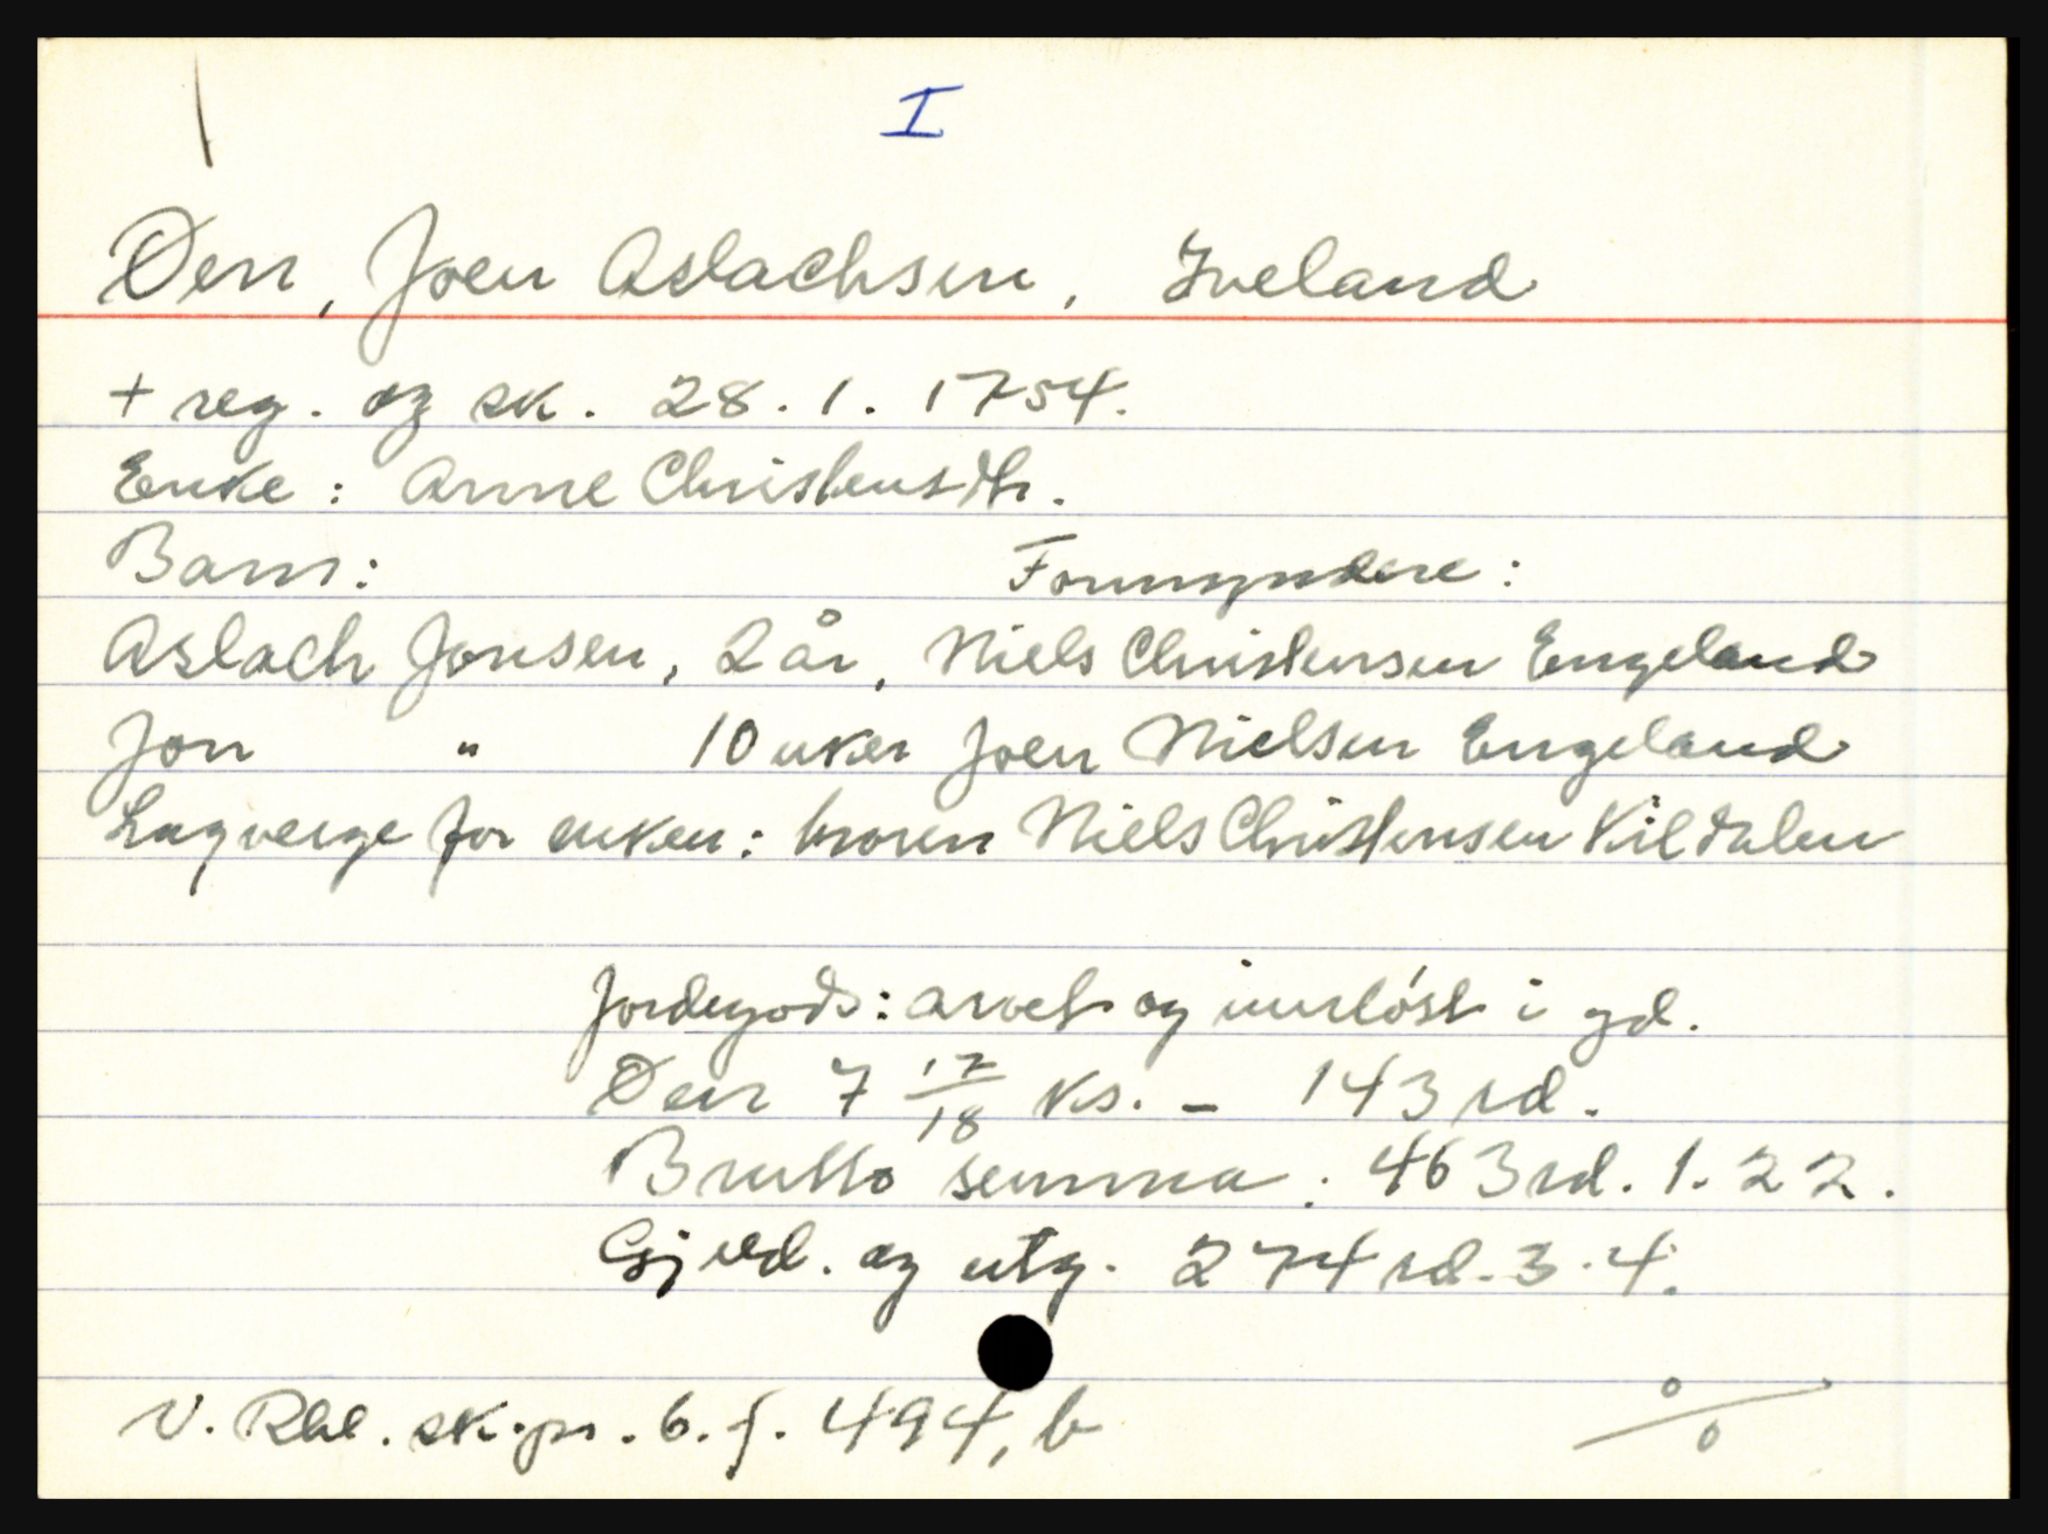 I
Øen, Joen Aslachsen, Iveland
+ reg. og sk. 28.1.1754.
Enke: Anne Christensdtr.
Barn: Formyndere:
Aslach Jonsen, 2 år, Niels Christensen Engeland
Jon " 10 uker Joen Nielsen Engeland
Lagverge for enken: broren Niels Christensen Kildalen
Jordegods: arvet og innløst i gd.
Øen 7 17/18 ks. - 143 rd.
Brutto summa: 463 rd. 1. 22.
Gjeld. og utg. 274 rd. 3. 4.
V. Rbl. sk.pr. 6. f. 494, b
o/o